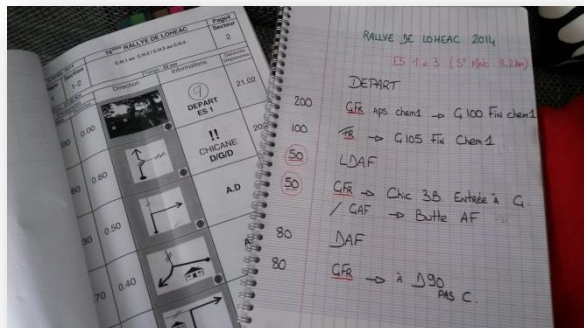 16ème RALLYE DE LOHEAC
Pages
Secteur
2
Section
1-2
Direction
Informations
Distances
Dégressives
0.00
9
DEPART
ES 1
21.02
0.80
!!
CHICANE
D/G/D
0.50
A.D
0.40
RALLYE DE LOHEAC 2014
DEPART
200 GFR aps chem1 → G100 Fin chem1
100 → G105 Fin Chem1
50 LDAF
50 GFR → Chic 3B. Entrée à G.
/ GAF → Butte AF
80 DAF
80 GFR → à D90
PAS C.